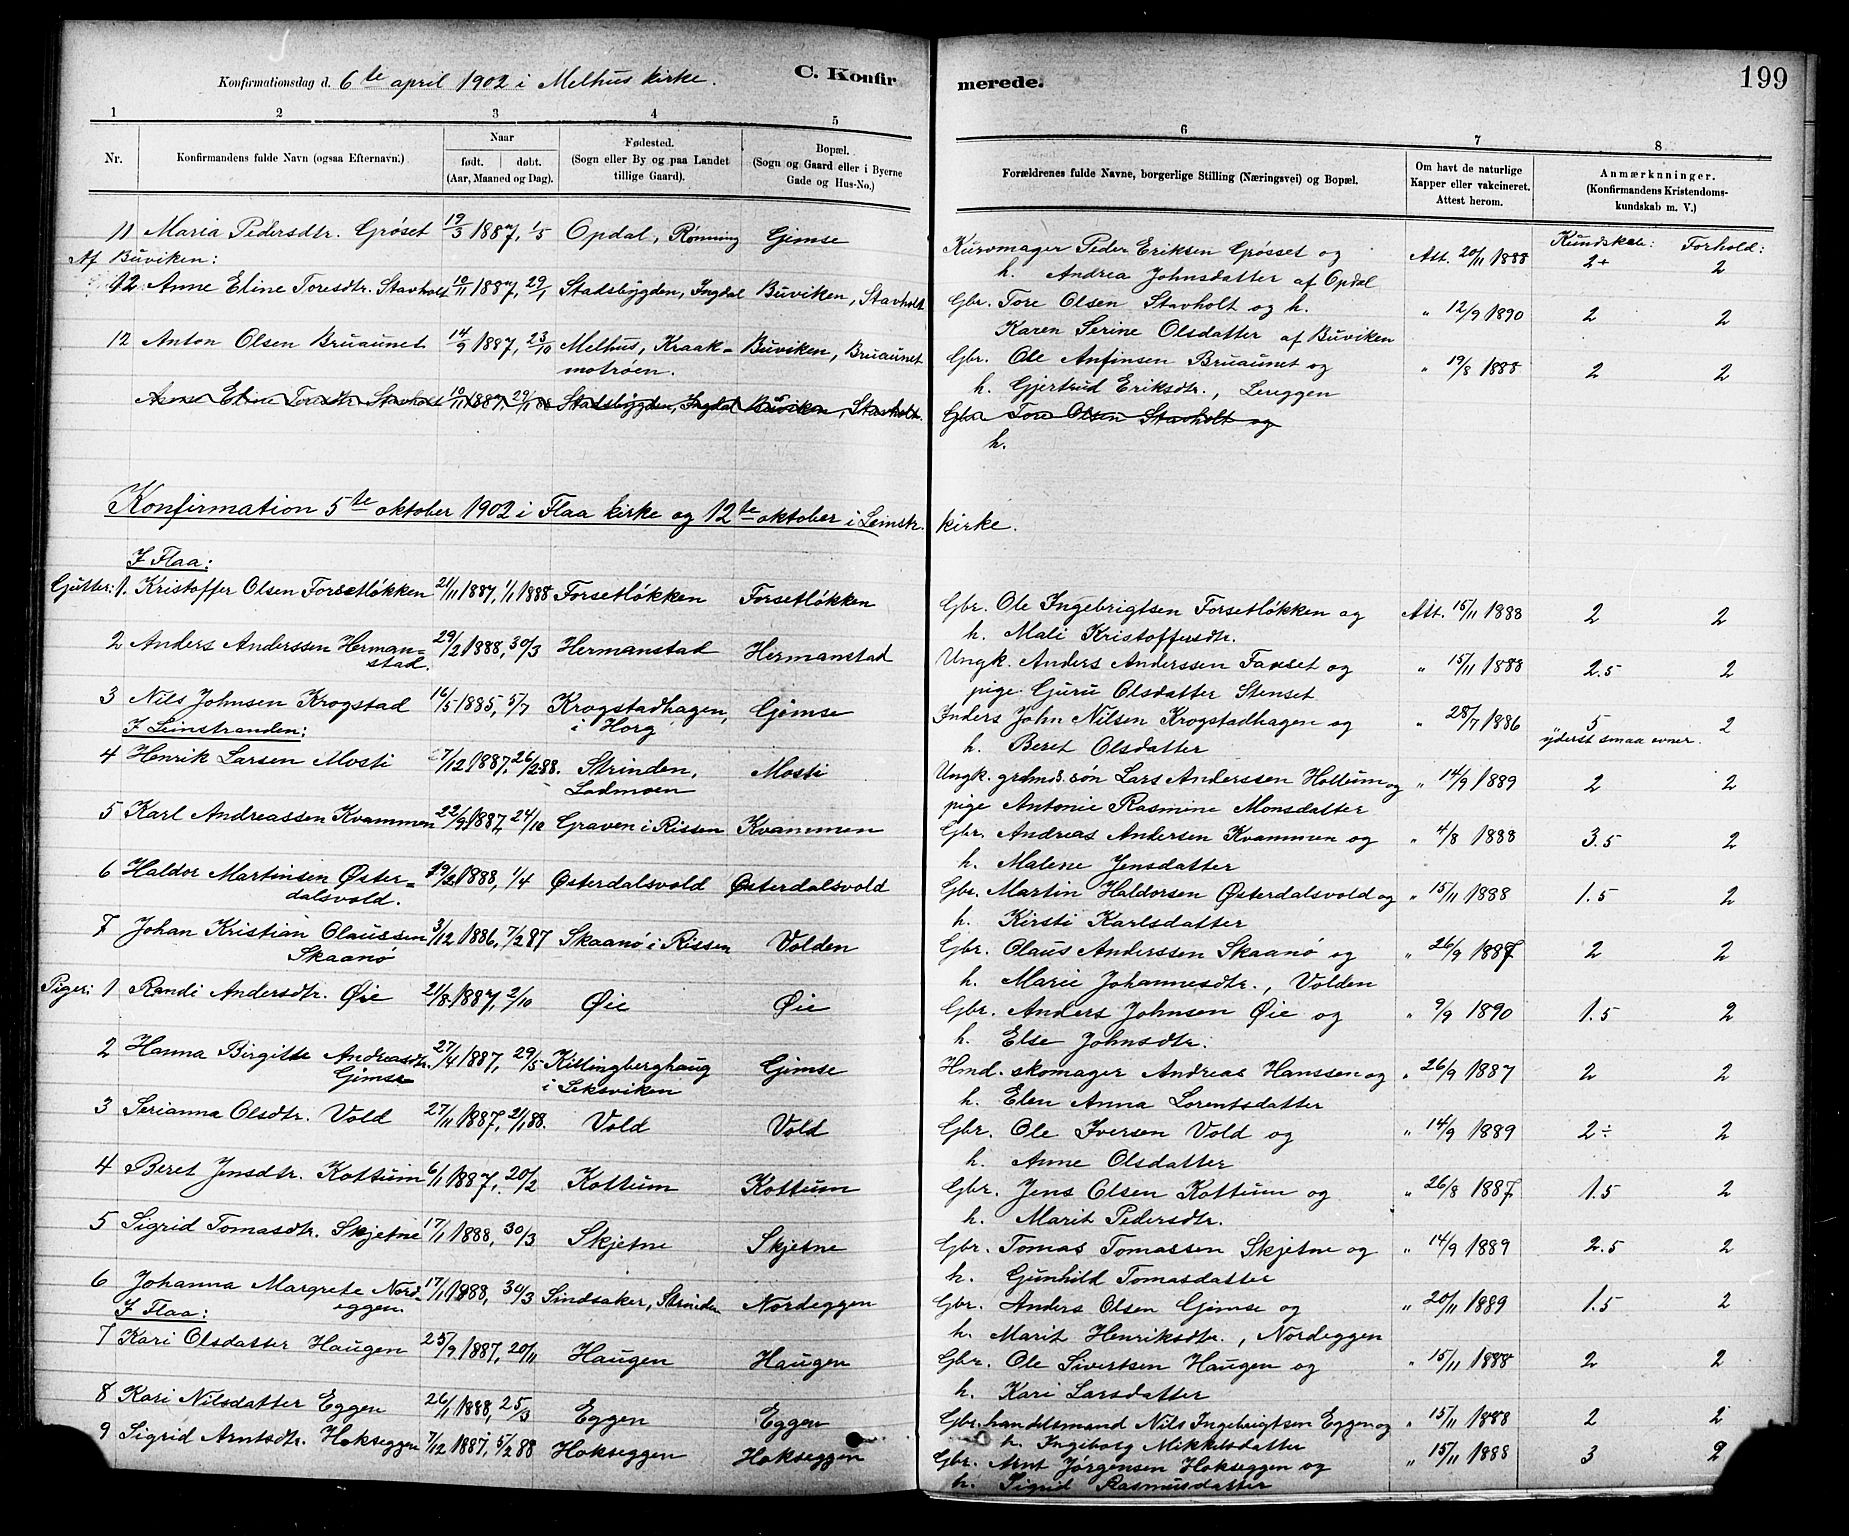 Konfirmationsdag d. 6te april 1902 i Melhus kirke. C. Konfirmerede. 199
1 2 3 4 5 6 7 8
Nr. Konfirmandens fulde Navn (ogsaa Efternavn.) Naar født. døbt. (Aar, Maaned og Dag). Fødested. (Sogn eller By og paa Landet tillige Gaard). Bopæl. (Sogn og Gaard eller i Byerne Gade og Hus-No.) Forældrenes fulde Navne, borgerlige Stilling (Næringsvei) og Bopæl. Om havt de naturlige Kapper eller vakcineret. Attest herom. Anmærkninger. (Konfirmandens Kristendomskundskab m. V.)
Kundskab: Forhold:
11 Maria Pedersdtr. Grøset 19/3 1887, 1/5 Opdal, Rønning Gimse Kurvmager Peder Eriksen Grøsset og Att. 20/11 1888 2+ 2
h. Andrea Johnsdatter af Opdal
Af Buviken:
12 Anne Eline Toresdtr. Stavholt 10/11 1887, 29/1 Stadsbygden, Ingdal Buviken, Stavholt Gbr. Tore Olsen Stavholt og h. " 12/9 1890 2 2
Karen Serine Olsdatter af Buviken
12 Anton Olsen Bruaunet 14/9 1887, 23/10 Melhus, Kraak- Buviken, Bruaunet Gbr. Ole Anfinsen Bruaunet og " 19/8 1888 2 2
motrøen. h. Gjertrud Eriksdtr., Leuggen
Anne Eline Toresdtr Stavholt 10/11 1887, 29/1 88 Stadsbygden, Ingdal Buviken, Stavholt. Gbr Tore Olsen Stavholt og
h.
Konfirmation 5te oktober 1902 i Flaa kirke og 12te oktober i Leinstr. kirke.
I Flaa:
Gutter: 1. Kristoffer Olsen Forsetløkken 21/11 1887, 1/1 1888 Forsetløkken Forsetløkken Gbr. Ole Ingebrigtsen Forsetløkken og Att. 15/11 1888 2 2
h. Mali Kristoffersdtr.
2 Anders Anderssen Herman- 29/2 1888, 30/3 Hermanstad Hermanstad Ungk. Anders Anderssen Faxset og " 15/11 1888 2.5 2
stad. pige Guru Olsdatter Stenset
3 Nils Johnsen Krogstad 16/5 1885, 5/7 Krogstadhagen, Gimse Inders John Nilsen Krogstadhagen og " 28/7 1886 5 2
i Horg h. Beret Olsdatter yderst smaa evner.
I Leinstranden:
4 Henrik Larsen Mosti 7/12 1887, 26/2 88. Strinden, Mosti Ungk. grdms. søn Lars Anderssen Hottum og " 14/9 1889 2 2
Ladmoen pige Antonie Rasmine Monsdatter
5 Karl Andreassen Kvammen 22/9 1887, 24/10 Graven i Rissen Kvammen Gbr. Andreas Andersen Kvammen og " 4/8 1888 3.5 2
h. Malene Jensdatter
6 Haldor Martinsen Øster- 19/2 1888, 1/4 Østerdalsvold Østerdalsvold Gbr. Martin Haldorsen Østerdalsvold og " 15/11 1888 1.5 2
dalsvold. h. Kirsti Karlsdatter
7 Johan Kristian Olaussen 3/12 1886, 7/2 87 Skaanø i Rissen Volden Gbr. Olaus Anderssen Skaanø og " 26/9 1887 2 2
Skaanø h. Marie Johannesdtr., Volden
Piger: 1 Randi Andersdtr. Øie 21/8 1887, 2/10 Øie Øie Gbr. Anders Johnsen Øie og " 9/9 1890 1.5 2
h. Else Johnsdtr.
2 Hanna Birgitte Andreasdtr. 27/4 1887, 29/5 Killingberghaug Gimse Hmd. skomager Andreas Hanssen og " 26/9 1887 2 2
Gimse i Leksviken h. Elen Anna Lorentsdatter
3 Serianna Olsdtr. Vold 27/11 1887, 21/1 88. Vold Vold Gbr. Ole Iversen Vold og " 14/9 1889 2÷ 2
h. Anne Olsdatter
4 Beret Jensdtr. Kottum 6/1 1887, 20/2 Kottum Kottum Gbr. Jens Olsen Kottum og " 26/8 1887 1.5 2
h. Marit Pedersdtr.
5 Sigrid Tomasdtr. Skjetne 17/1 1888, 30/3 Skjetne Skjetne Gbr. Tomas Tomassen Skjetne og " 14/9 1889 2.5 2
h. Gunhild Tomasdatter
6 Johanna Margrete Nord- 17/1 1888, 30/3 Sindsaker, Strinden Nordeggen Gbr. Anders Olsen Gimse og " 20/11 1889 1.5 2
eggen h. Marit Henriksdtr., Nordeggen
I Flaa:
7 Kari Olsdatter Haugen 25/9 1887, 20/11 Haugen Haugen Gbr. Ole Sivertsen Haugen og " 15/11 1888 2 2
h. Kari Larsdatter
8 Kari Nilsdatter Eggen 26/1 1888, 25/3 Eggen Eggen Gbr. handelsmand Nils Ingebrigtsen Eggen og " 15/11 1888 2 2
h. Ingeborg Mikkelsdatter
9 Sigrid Arntsdtr. Hokseggen 7/12 1887, 5/2 88 Hokseggen Hokseggen Gbr. Arnt Jørgensen Hokseggen og " 15/11 1888 3 2
h. Sigrid Rasmusdatter